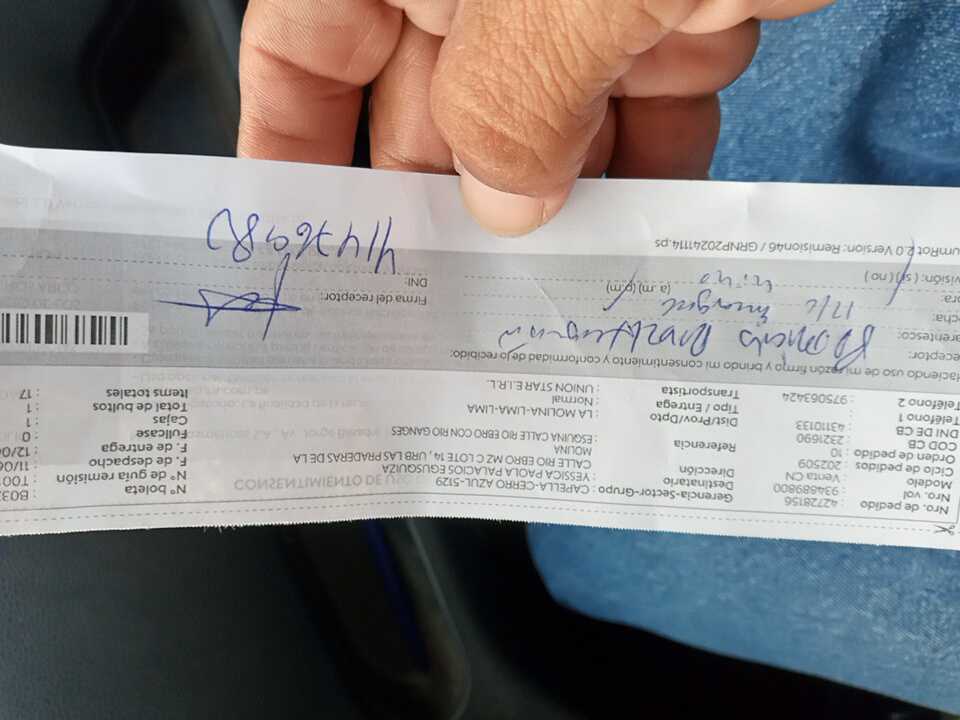 Nro. de pedido : 42728156 Gerencia-Sector-Grupo : CAPELLA-CERRO AZUL-5129 Nº boleta : B03
Nro. vol : 934689800 Destinatario : YESSICA PAOLA PALACIOS EUSQUIZA Nº de guía remisión : T00
Modelo : Venta CN Dirección : CALLE RIO EBRO MZ C LOTE 14, URB LAS PRADERAS DE LA MOLINA F. de despacho : 11/06
Ciclo de pedidos : 202509 F. de entrega : 12/06
Orden de pedido : 10 Referencia : ESQUINA CALLE RIO EBRO CON RIO GANGES Fullcase : 0
COD CB : 2321690 Dist/Prov/Dpto : LA MOLINA-LIMA-LIMA Cajas : 1
DNI DE CB : 43110133 Tipo / Entrega : Normal Total de bultos : 1
Teléfono 1 : Transportista : UNION STAR E.I.R.L. Items totales : 17
Teléfono 2 : 975063424
CONSENTIMIENTO DE
Haciendo uso de mi razón firmo y brindo mi consentimiento y conformidad de lo recibido:
eceptor:
arentesco:
cha: 11/6
ora: (a.m) (p.m)
visión: ( si ) ( no )
Firma del receptor:
DNI: 41476983
umRot 2.0 Version: Remision46 / GRNP20241114.ps